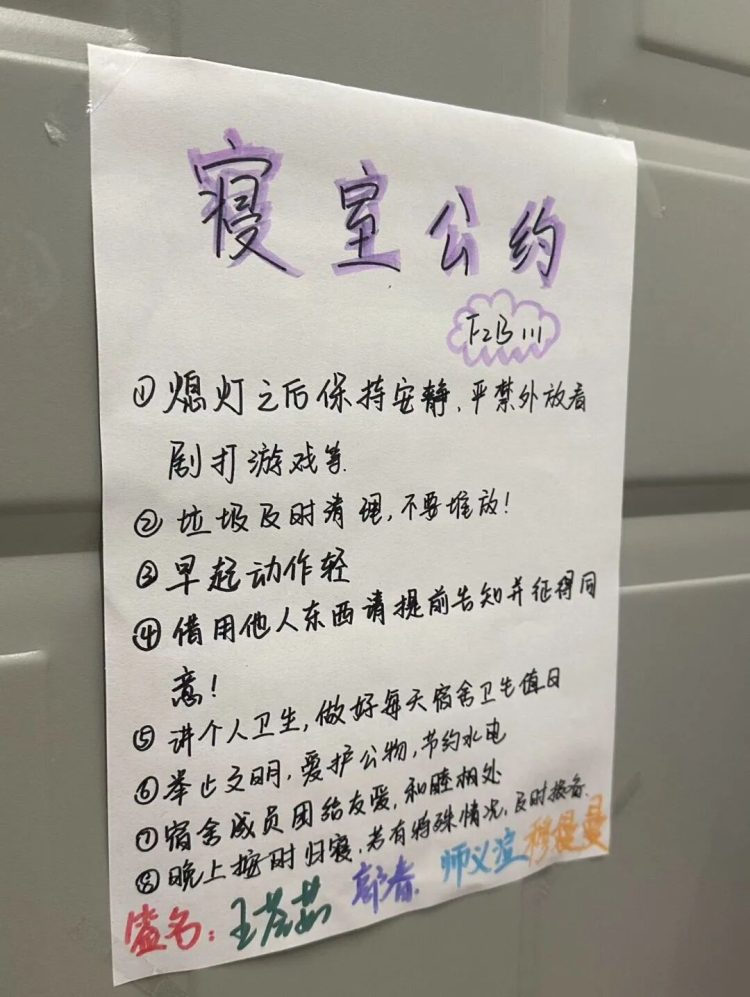 寝室公约
F2B111
①熄灯之后保持安静、严禁外放看
剧打游戏等.
②垃圾及时清理,不要堆放!
③早起动作轻
④借用他人东西请提前告知并征得同
意!
⑤讲个人卫生,做好每天宿舍卫生值日
⑥举止文明,爱护公物,节约水电
⑦宿舍成员团结友爱,和睦相处
⑧晚上按时归寝,若有特殊情况,及时报备.
名: 王 郭春. 师义渲 穆曼曼